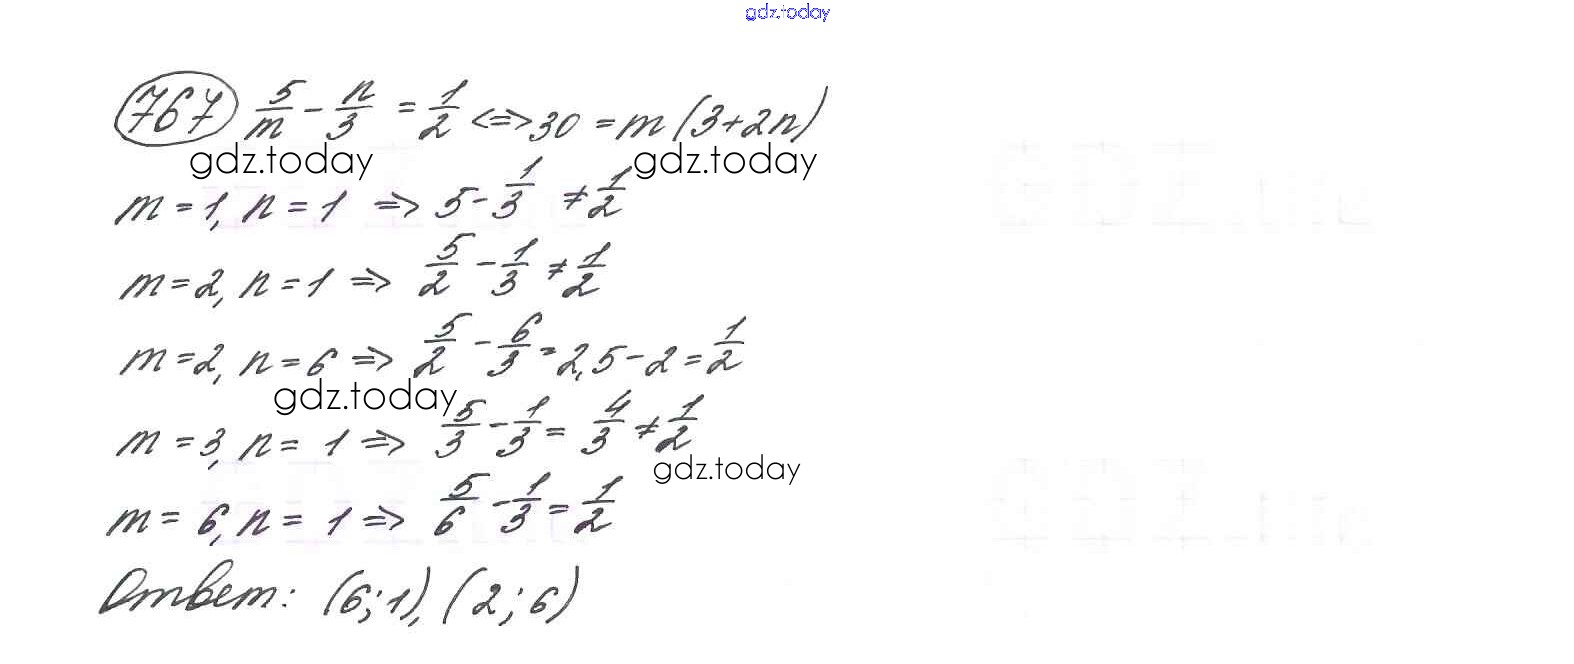 gdz.today
767 5/m - n/3 = 1/2 <=> 30 = m(3+2n)
gdz.today gdz.today
m = 1, n = 1 => 5 - 1/3 ≠ 1/2
m = 2, n = 1 => 5/2 - 1/3 ≠ 1/2
m = 2, n = 6 => 5/2 - 6/3 = 2,5 - 2 = 1/2
gdz.today
m = 3, n = 1 => 5/3 - 1/3 = 4/3 ≠ 1/2
gdz.today
m = 6, n = 1 => 5/6 - 1/3 = 1/2
Ответ: (6; 1), (2; 6)